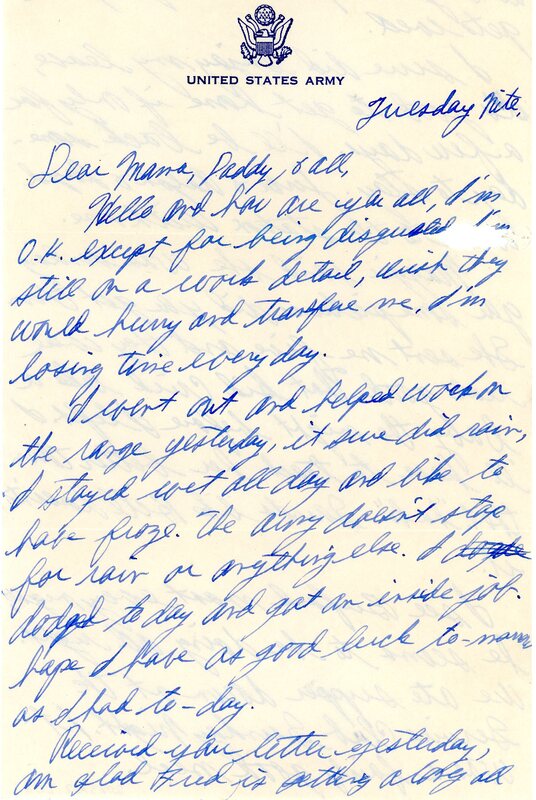 UNITED STATES ARMY
Tuesday Nite,
Dear Mama, Daddy, & all,
Hello and how are you all, I'm
O.K. except for being disgusted I'm
still on a work detail, wish they
would hurry and transfer me. I'm
losing time every day.
I went out and helped work on
the range yesterday, it sure did rain,
I stayed wet all day and like to
have froze. The army doesn't stop
for rain or anything else. I
dodged to day and got an inside job.
hope I have as good luck to-morrow
as I had to-day.
Received your letter yesterday,
am glad Fred is getting along all